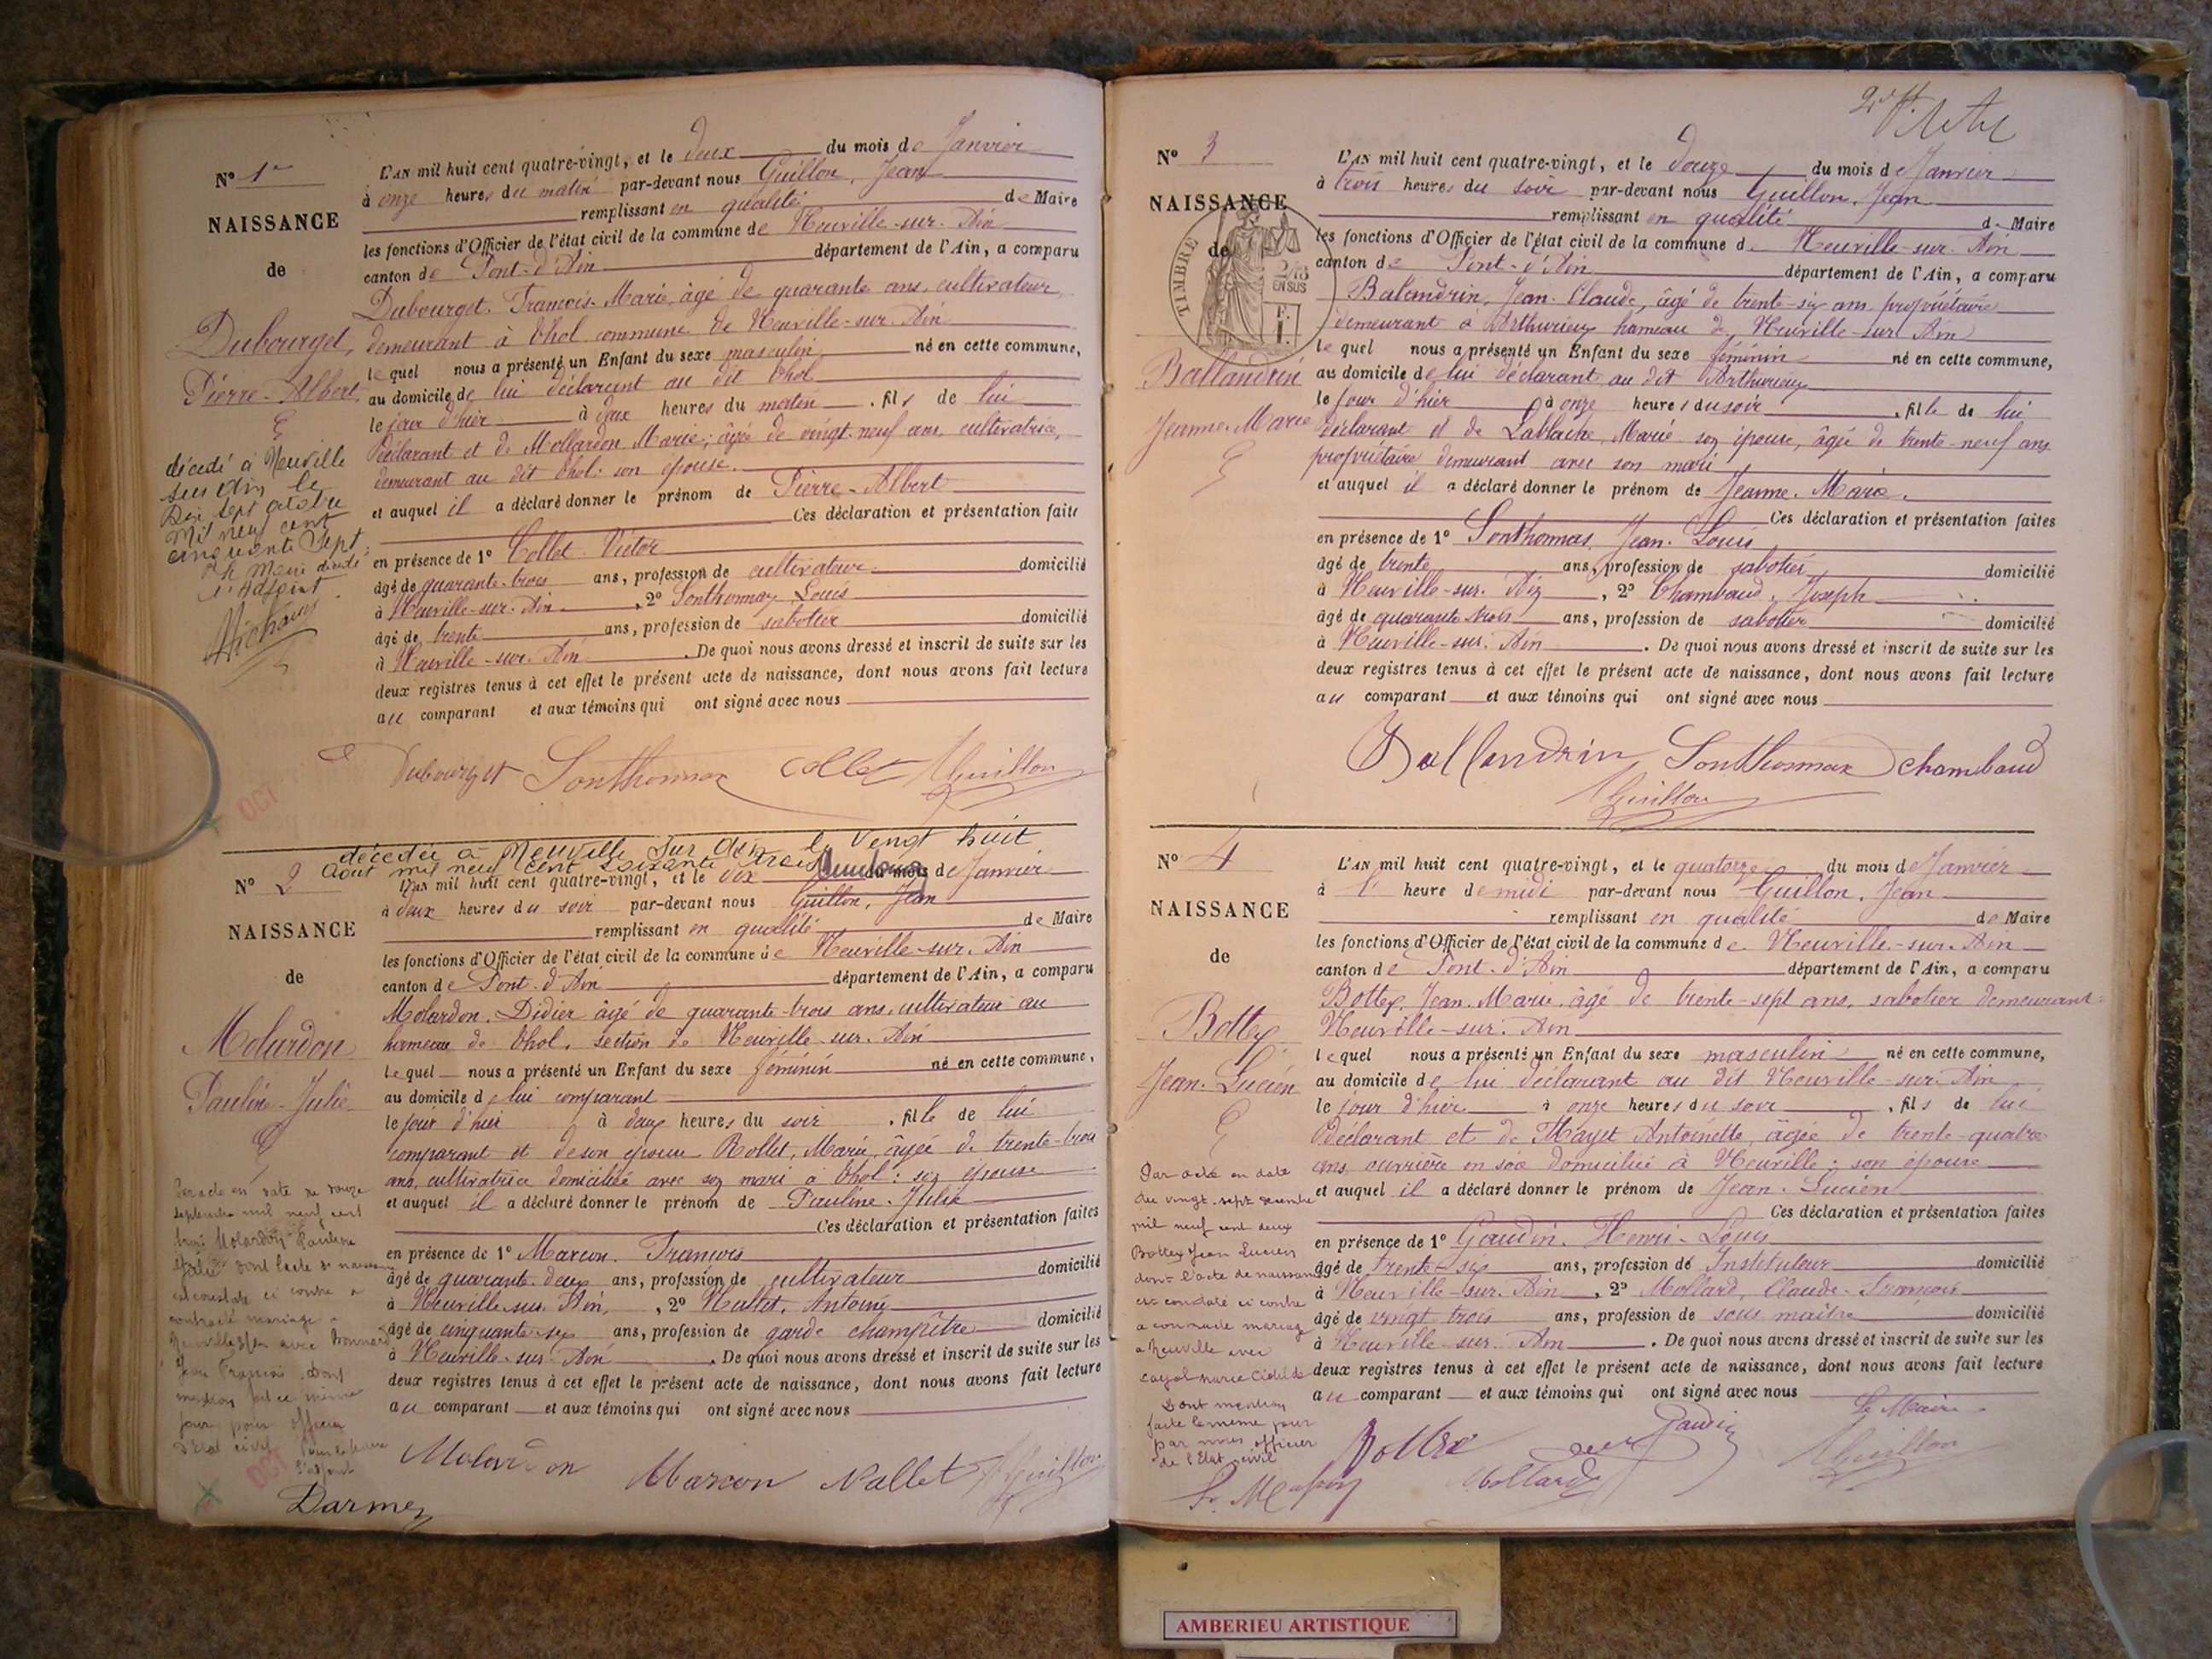 Nº 1er
NAISSANCE
de
Dubourget,
Pierre-Albert
décédé à Neuville
sur Ain le
Dix sept octobre
mil neuf cent
cinquante sept.
L'adjoint.
L'AN mil huit cent quatre-vingt, et le deux du mois de Janvier
à onze heures du matin par-devant nous Guillon, Jean
remplissant en qualité de Maire
les fonctions d'Officier de l'état civil de la commune de Neuville-sur-Ain
canton de Pont-d'Ain département de l'Ain, a comparu
Dubourget, François-Marie, âgé de quarante ans, cultivateur,
demeurant à Thol commune de Neuville-sur-Ain
lequel nous a présenté un Enfant du sexe masculin né en cette commune,
au domicile de lui déclarant au dit Thol
le jour d'hier à deux heures du matin, fils de lui
Déclarant et de Mollardon Marie, âgée de vingt-neuf ans, cultivatrice,
demeurant au dit Thol: son épouse.
et auquel il a déclaré donner le prénom de Pierre-Albert
Ces déclaration et présentation faites
en présence de 1º Collet Victor
âgé de quarante-trois ans, profession de cultivateur domicilié
à Neuville-sur-Ain, 2º Sonthonnax Louis
âgé de trente ans, profession de sabotier domicilié
à Neuville-sur-Ain. De quoi nous avons dressé et inscrit de suite sur les
deux registres tenus à cet effet le présent acte de naissance, dont nous avons fait lecture
au comparant et aux témoins qui ont signé avec nous
Dubourget Sonthonnax Collet JGuillon
OCT
décédée à Neuville sur Ain le vingt huit
Août mil neuf cent soixante trois
Nº 2
NAISSANCE
de
Molardon
Pauline-Julie
Par acte en date du douze
septembre mil neuf cent
trois Molardon Pauline
Julie dont l'acte de naissance
est constaté ci contre a
contracté mariage à
Neuville s/Ain avec
Jean François. Dont
mention faite le même
jour par officier
d'Etat civil
L'adjoint
L'AN mil huit cent quatre-vingt, et le dix du mois de Janvier
à deux heures du soir par-devant nous Guillon, Jean
remplissant en qualité de Maire
les fonctions d'Officier de l'état civil de la commune de Neuville-sur-Ain
canton de Pont-d'Ain département de l'Ain, a comparu
Molardon, Didier âgé de quarante-trois ans, cultivateur au
hameau de Thol, section de Neuville-sur-Ain
lequel nous a présenté un Enfant du sexe féminin né en cette commune,
au domicile de lui comparant
le jour d'hui à deux heures du soir, fille de lui
comparant et de son épouse Rollet, Marie, âgée de trente-trois
ans, cultivatrice domiciliée avec son mari à Thol: son épouse
et auquel il a déclaré donner le prénom de Pauline-Julie
Ces déclaration et présentation faites
en présence de 1º Marcon, François
âgé de quarante-deux ans, profession de cultivateur domicilié
à Neuville-sur-Ain, 2º Nallet, Antoine
âgé de cinquante-six ans, profession de garde champêtre domicilié
à Neuville-sur-Ain. De quoi nous avons dressé et inscrit de suite sur les
deux registres tenus à cet effet le présent acte de naissance, dont nous avons fait lecture
au comparant et aux témoins qui ont signé avec nous
Molardon Marcon Nallet JGuillon
OCT
Darmey
Nº 3
NAISSANCE
de
TIMBRE
2/10
EN SUS
F.
1.
Ballandrin
Jeanne-Marie
L'AN mil huit cent quatre-vingt, et le douze du mois de Janvier
à trois heures du soir par-devant nous Guillon, Jean
remplissant en qualité de Maire
les fonctions d'Officier de l'état civil de la commune de Neuville-sur-Ain
canton de Pont-d'Ain département de l'Ain, a comparu
Balandrin, Jean-Claude, âgé de trente-six ans, propriétaire
demeurant à Arthurieux hameau de Neuville-sur-Ain
lequel nous a présenté un Enfant du sexe féminin né en cette commune,
au domicile de lui déclarant au dit Arthurieux
le jour d'hier à onze heures du soir, fille de lui
déclarant et de Lablache, Marie son épouse, âgée de trente-neuf ans
propriétaire demeurant avec son mari
et auquel il a déclaré donner le prénom de Jeanne-Marie.
Ces déclaration et présentation faites
en présence de 1º Sonthonnax, Jean-Louis
âgé de trente ans, profession de sabotier domicilié
à Neuville-sur-Ain, 2º Chambaud, Joseph
âgé de quarante trois ans, profession de sabotier domicilié
à Neuville-sur-Ain. De quoi nous avons dressé et inscrit de suite sur les
deux registres tenus à cet effet le présent acte de naissance, dont nous avons fait lecture
au comparant et aux témoins qui ont signé avec nous
Ballandrin Sonthonnax Chambaud
JGuillon
Nº 4
NAISSANCE
de
Bottex
Jean-Lucien
Par acte en date
du vingt-sept décembre
mil neuf cent deux
Bottex Jean Lucien
dont l'acte de naissance
est constaté ci contre
a contracté mariage
à Neuville avec
Cayol Marie Clotilde
Dont mention
faite le même jour
par nous officier
de l'Etat civil
L'AN mil huit cent quatre-vingt, et le quatorze du mois de Janvier
à l' heure de midi par-devant nous Guillon, Jean
remplissant en qualité de Maire
les fonctions d'Officier de l'état civil de la commune de Neuville-sur-Ain
canton de Pont-d'Ain département de l'Ain, a comparu
Bottex, Jean-Marie, âgé de trente-sept ans, sabotier demeurant
Neuville-sur-Ain
lequel nous a présenté un Enfant du sexe masculin né en cette commune,
au domicile de lui déclarant au dit Neuville-sur-Ain
le jour d'hier à onze heures du soir, fils de lui
Déclarant et de Mayet Antoinette, âgée de trente-quatre
ans, ouvrière en soie domiciliée à Neuville; son épouse
et auquel il a déclaré donner le prénom de Jean-Lucien
Ces déclaration et présentation faites
en présence de 1º Gaudin, Henri-Louis
âgé de trente-six ans, profession de Instituteur domicilié
à Neuville-sur-Ain, 2º Mollard, Claude-François
âgé de vingt trois ans, profession de sous maître domicilié
à Neuville-sur-Ain. De quoi nous avons dressé et inscrit de suite sur les
deux registres tenus à cet effet le présent acte de naissance, dont nous avons fait lecture
au comparant et aux témoins qui ont signé avec nous
Le Maire
Bottex Gaudin JGuillon
Mollard
AMBERIEU ARTISTIQUE